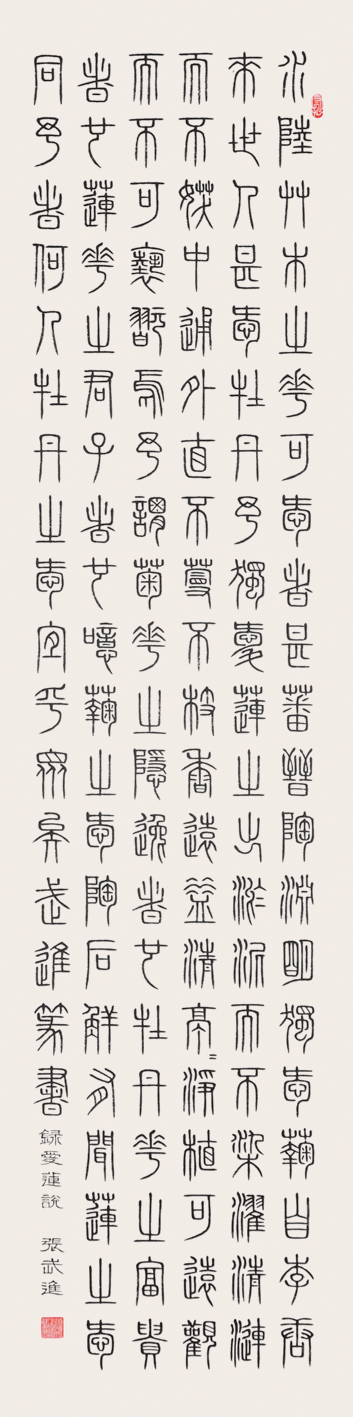 水陸艸木之華可愛者甚蕃晉陶淵明獨愛蘜自李唐
來世人甚愛牡丹予獨愛蓮之出淤泥而不染濯清漣
而不妖中通外直不蔓不枝香遠益清亭=淨植可遠觀
而不可褻翫焉予謂菊華之隱逸者也牡丹華之富貴
者也蓮華之君子者也噫蘜之愛陶后鮮有聞蓮之愛
同予者何人牡丹之愛宜乎眾矣武進篆書
錄愛蓮說 張武進